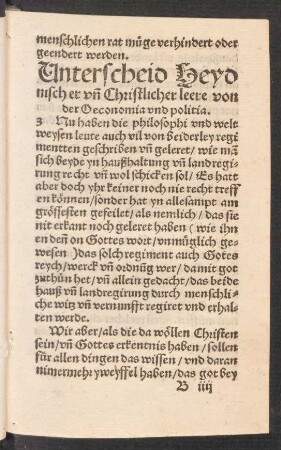 menschlichen rat müge verhindert oder
geendert werden.
Unterscheid Heyd
nisch er vñ Christlicher leere von
der Oeconomia vnd politia.
3 Nu haben die philosophi vnd welt
weysen leute auch vil von beiderley regi
mentten geschriben vñ geleret/ wie mañ
sich beyde yn haußhaltung vñ landregi
rung recht vñ wol schicken sol/ Es hatt
aber doch yhr keiner noch nie recht treff
en können/ sonder hat yn allesampt am
grössesten gefeilet/ als nemlich/ das sie
nit erkant noch geleret haben (wie ihn
en deñ on Gottes wort/ vnmüglich ge-
wesen) das solch regiment auch Gotes
reych/ werck vñ ordnũg wer/ damit got
zuthün het/ vñ allein gedacht/ das beide
hauß vñ landregirung durch menschli-
che witz vñ vernunfft regiret vnd erhal
ten werde.
Wir aber/ als die da wöllen Christen
sein/ vñ Gottes erkentnis haben/ sollen
für allen dingen das wissen/ vnd daran
nimermehr yweyffel haben/ das got bey
B iiij